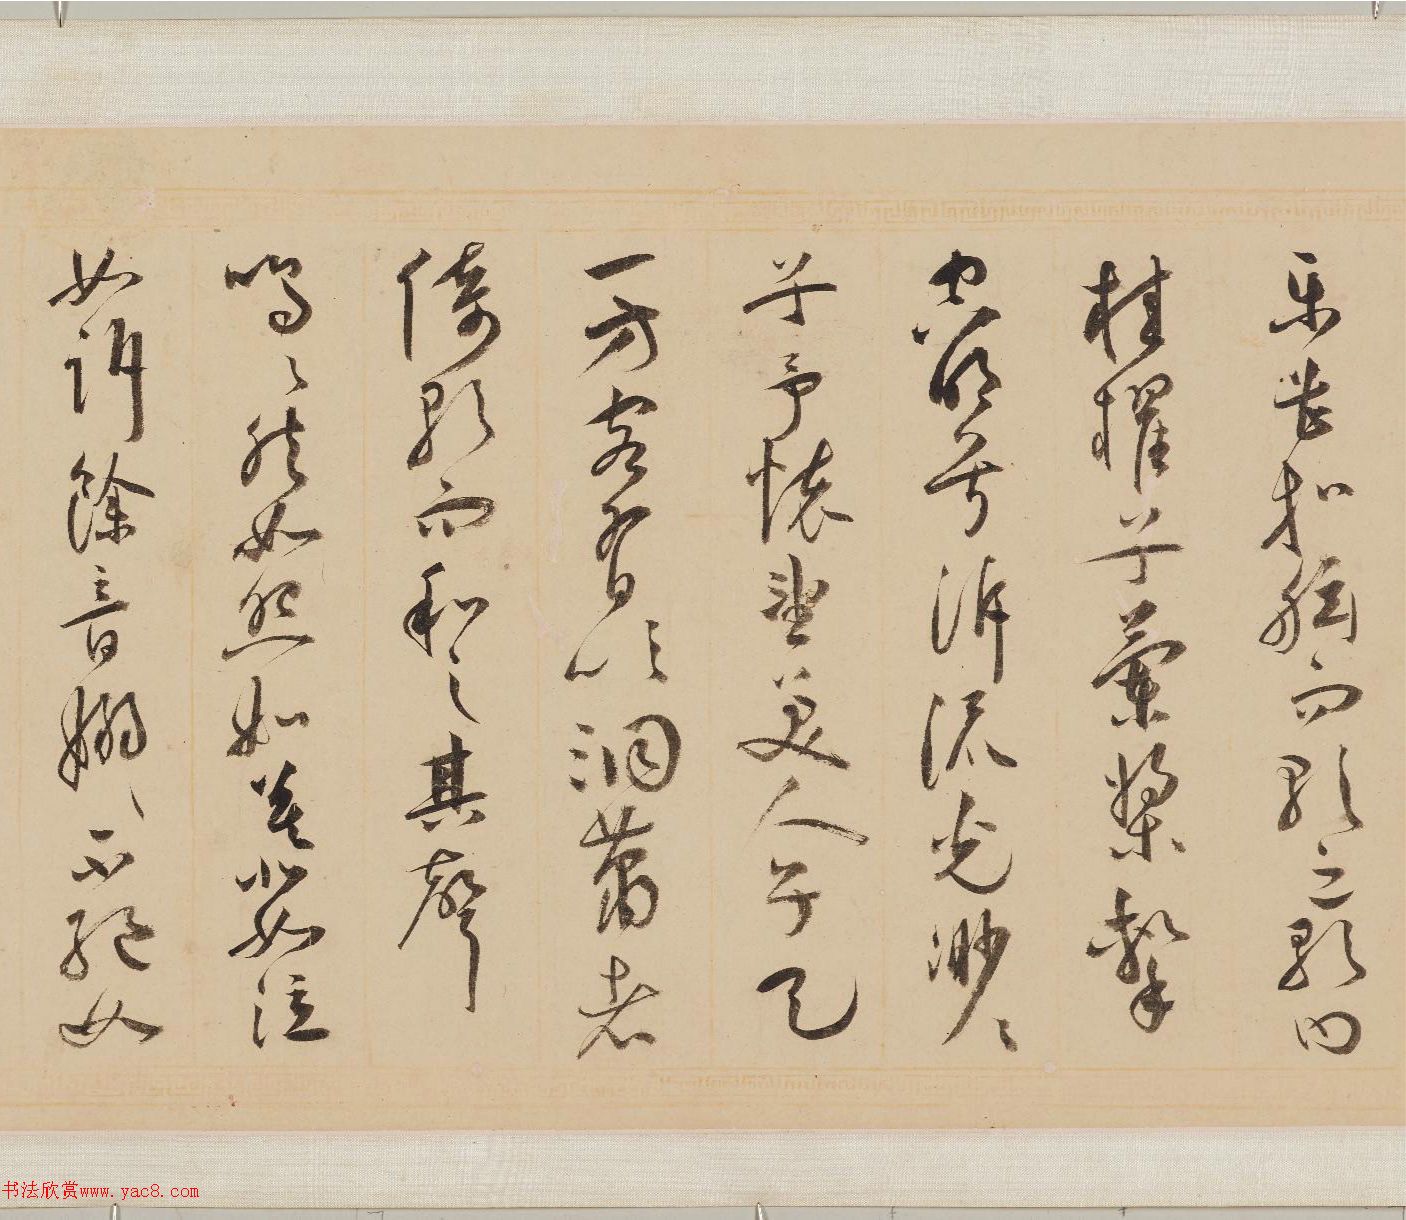 樂甚扣舷而歌之歌曰
桂櫂兮蘭槳擊
空明兮泝流光渺〻
兮予懷望美人兮天
一方客有吹洞簫者
倚歌而和之其聲
嗚〻然如怨如慕如泣
如訴餘音嫋〻不絕如
书法欣赏www.yac8.com